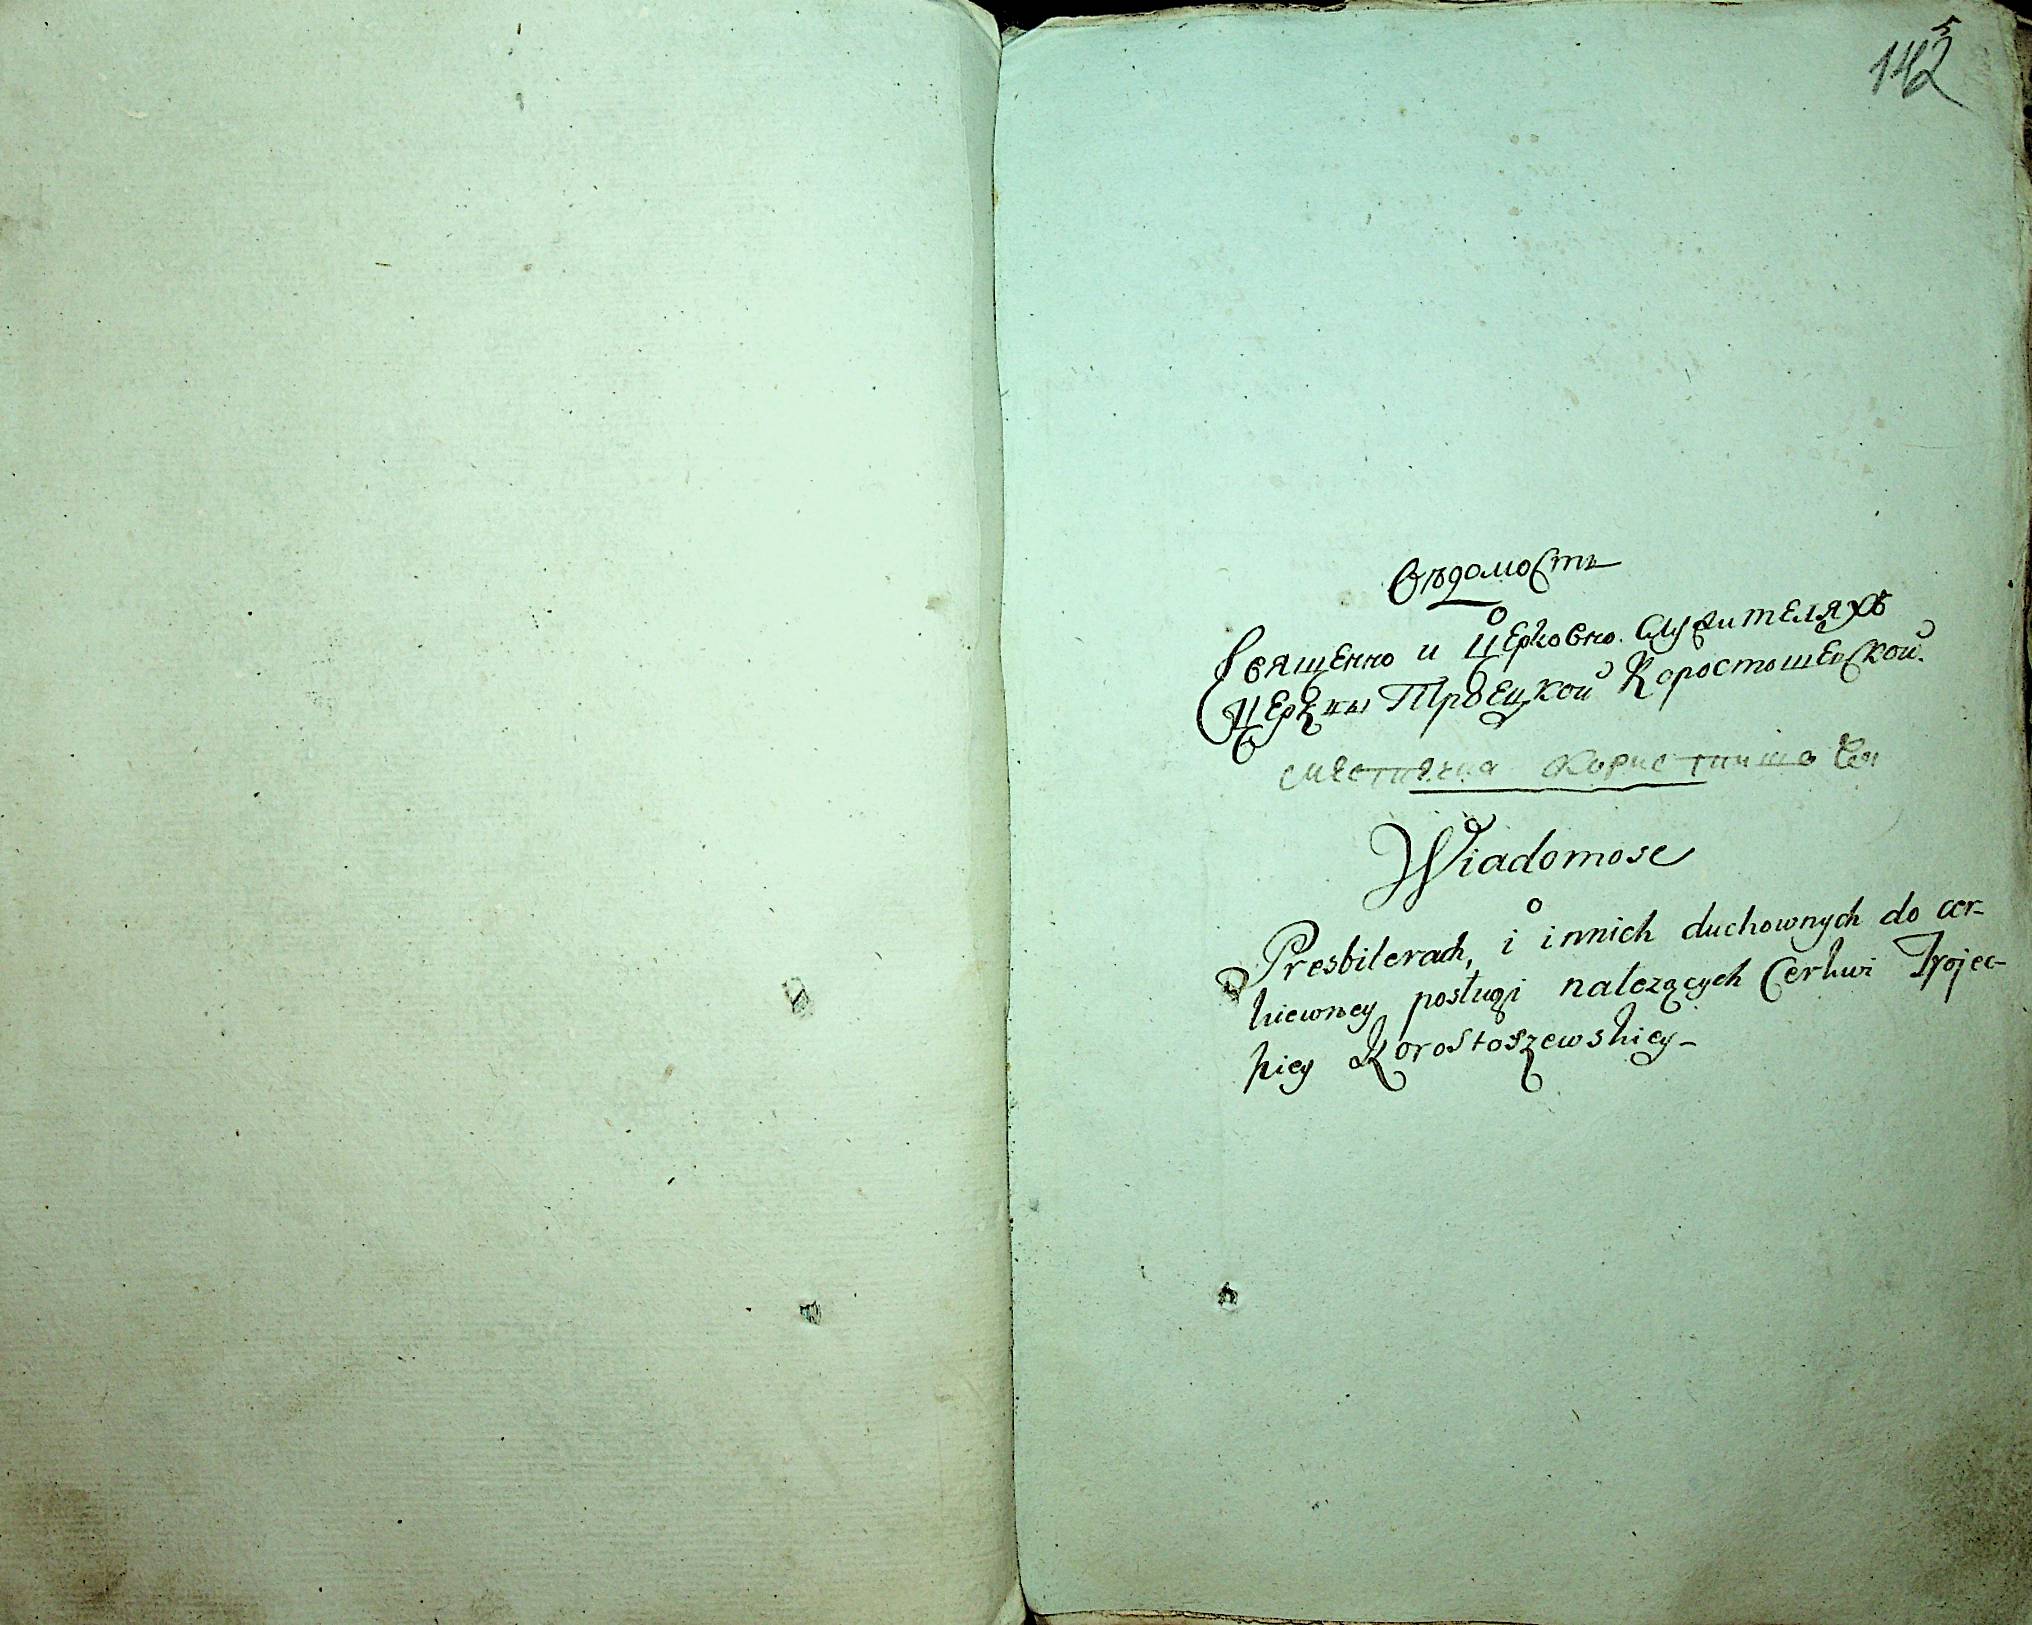 142
5
Вѣдомость
о
Священно и Церковно. служителяхъ
Церкви Троецкой Коростошевской.
местечка Коростишев
Wiadomosc
o
Presbiterach, i innich duchownych do cer-
kiewney posługi nalezących Cerkwi Trojec-
kiey Korostoszewskiey-